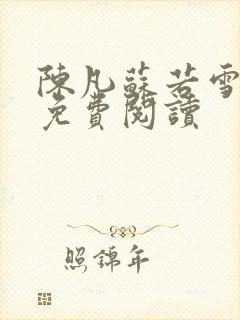 陳凡蘇若雪
免費閱讀
照錦年